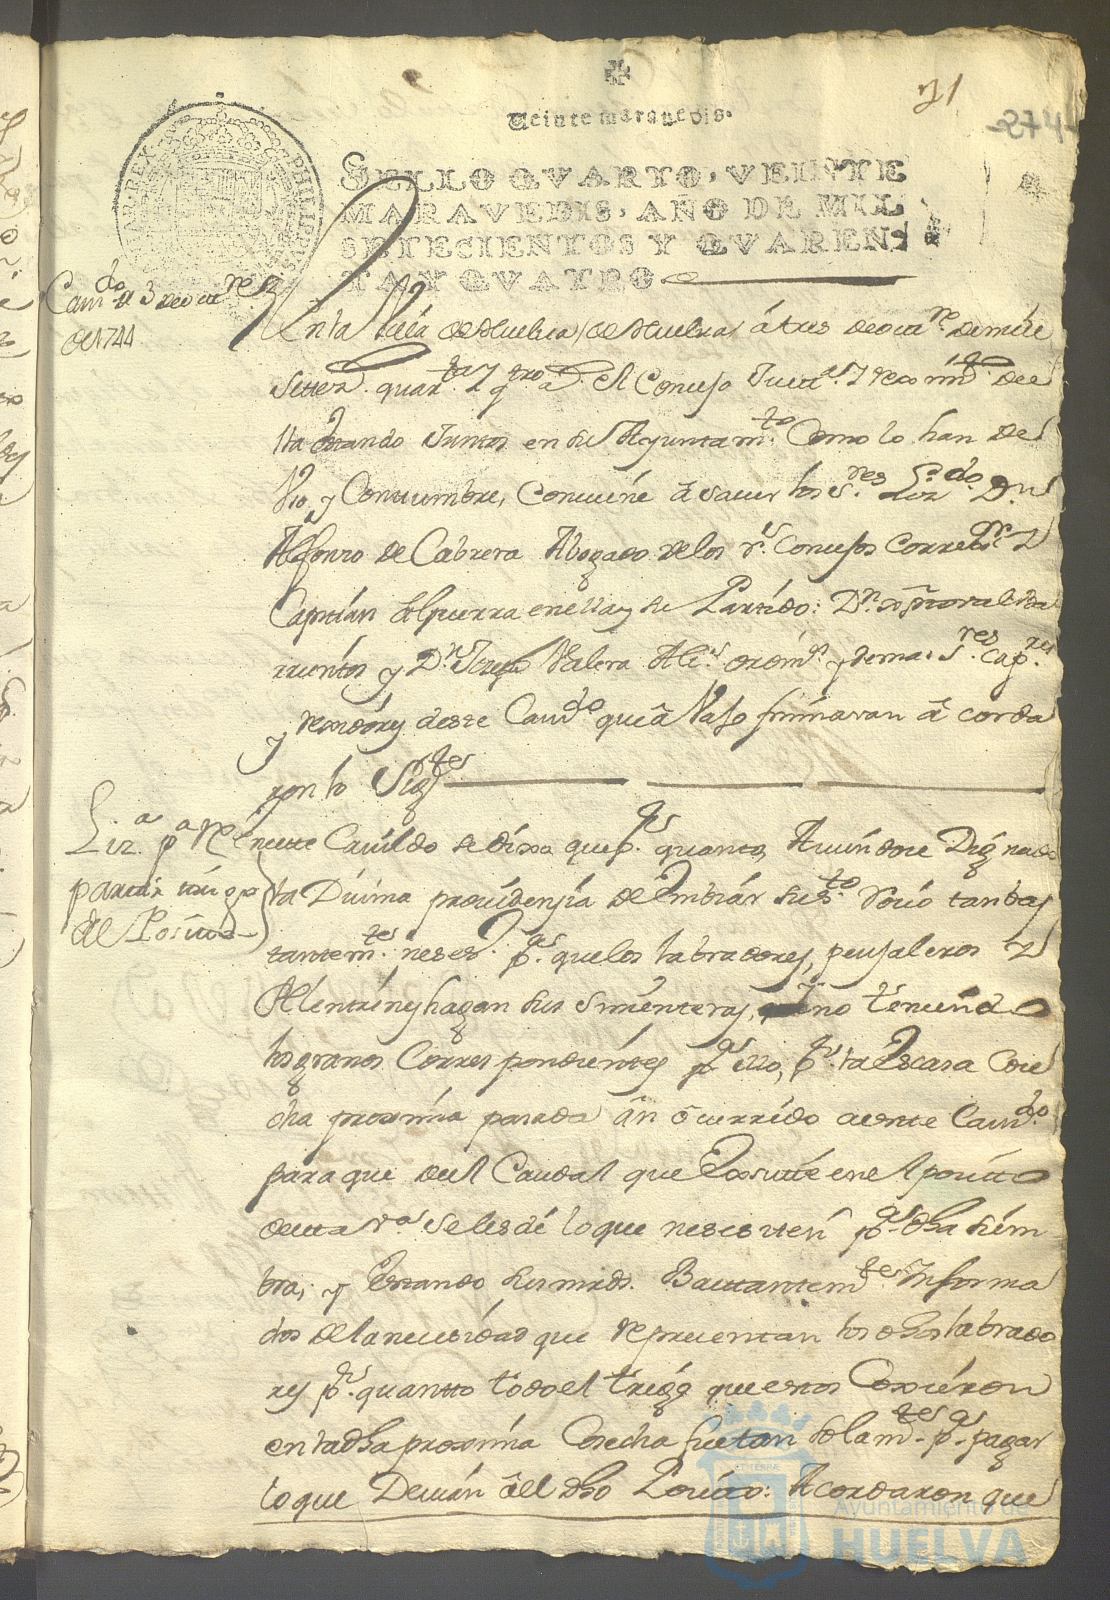 31
874
Veinte maravedis.
SELLO QVARTO, VEINTE
MARAVEDIS, AÑO DE MIL
SETECIENTOS Y QVAREN-
TA Y QVATRO
PHILIPPUS
IAR. REX
Cavdo de 3 de octre
de 1744
En la Villa de Huelva a tres de octre de mill
setez. quarta y qtro a. el Concejo Justa. y reximto de
lla estando Juntos en su Ayuntamto Como lo han de
Vso y Constumbre, Combiene a saver los sres Lizdo Dn
Alfonso de Cabrera Abogado de los rs. Consejos Correxor y
Capitan de guerra en ella y su Partido: Dn
rrientos y Dn Joseph Valera Alcs ordins y demas sres cap.res
y rexidores deste Cavdo que aVajo firmaran acorda
ron lo Sigte
Liza pa Re
partir trigo
del Posito
En este Cavildo se dixo que pr quanto Aviendose Dignado
la Divina providenzia de Embiar su sto Rocio tan bas
tantemte neses. pa que los labradores, peujaleros y
Pelentrines hagan sus Simenteras, que no teniendo
los granos Correspondientes pa ello, pr la Escasa Cose
cha proxima pasada an ocurrido a este Cavdo
para que del Caudal que Existe en el posito
desta va se les dé lo que nesesiten pa dha siem
bra, y Estando sus mrds. Bastantemte Informa
dos de la nesesidad que representan los dhos labrado
res pr quantto todo el trigo que estos Coxieron
en la dha proxima Cosecha fue tan solamte pa pagar
lo que Devian al dho Posito: Acordaron que
Ayuntamiento de
HUELVA